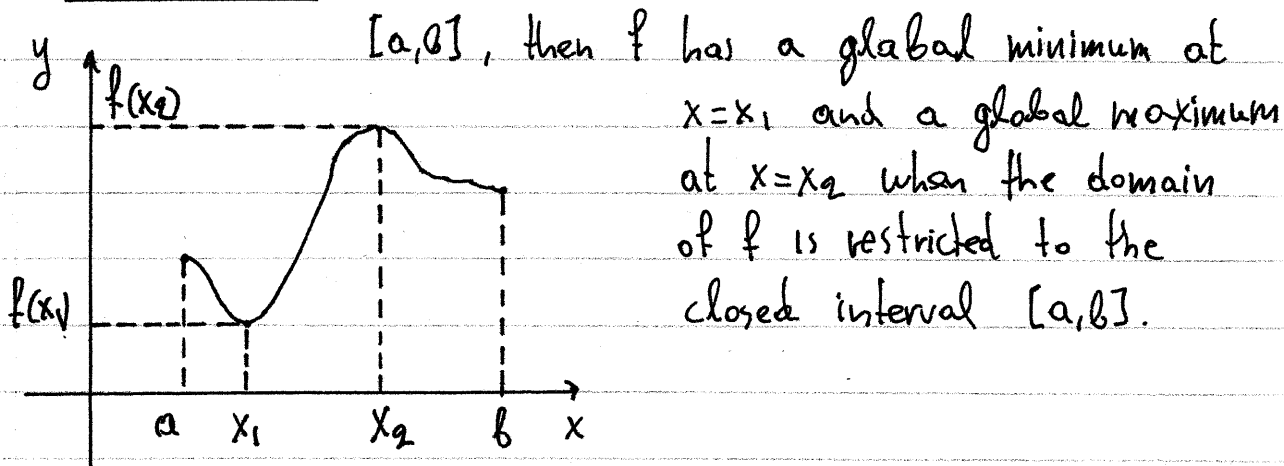 [a,b], then f has a global minimum at
y
f(x₂)
x=x₁ and a global maximum
at x=x₂ when the domain
of f is restricted to the
f(x₁)
closed interval [a,b].
a x₁ x₂ b x